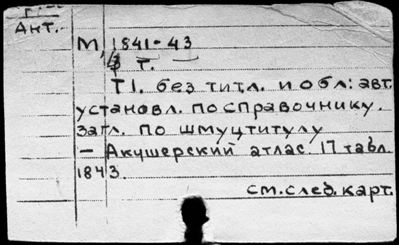 Ант.
М, 1841-43
т.
Т1. без титл. и обл: авт.
установл. по справочнику.
Загл. по шмуцтитулу
– Акушерский атлас. 17 табл.
1843.
см. след. карт.